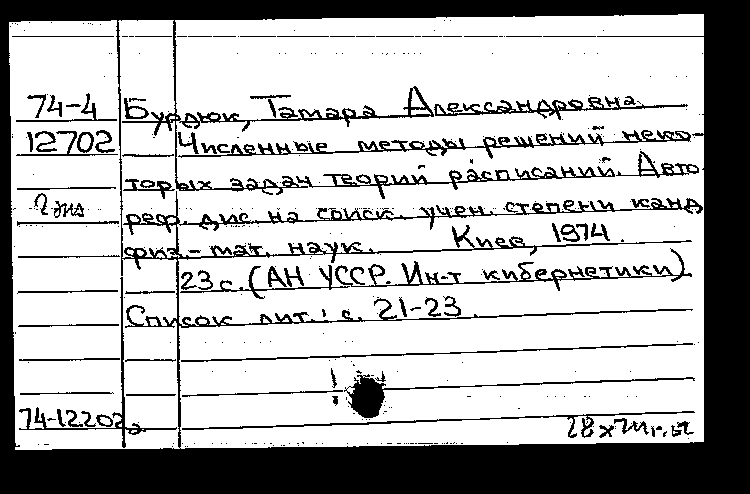 74-4 Бурдюк, Тамара Александровна.
12702 Численные методы решений неко-
торых задач теорий расписаний. Авто-
2 экз реф. дис. на соиск. учен. степени канд
физ.-мат. наук. Киев, 1974.
23 с. (АН УССР. Ин-т кибернетики)
Список лит.: с. 21-23.
74-12202